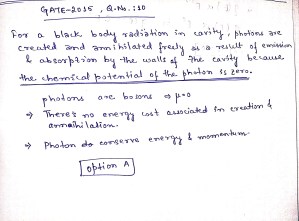 GATE-2015, Q.No.:10
For a black body radiation in cavity, photons are
created and annihilated freely as a result of emission
& absorption by the walls of the cavity because
the chemical potential of the photon is zero.
photons are bosons ⇒ μ=0
⇒ There's no energy cost associated in creation &
annihilation.
⇒ Photon do conserve energy & momentum.
option A